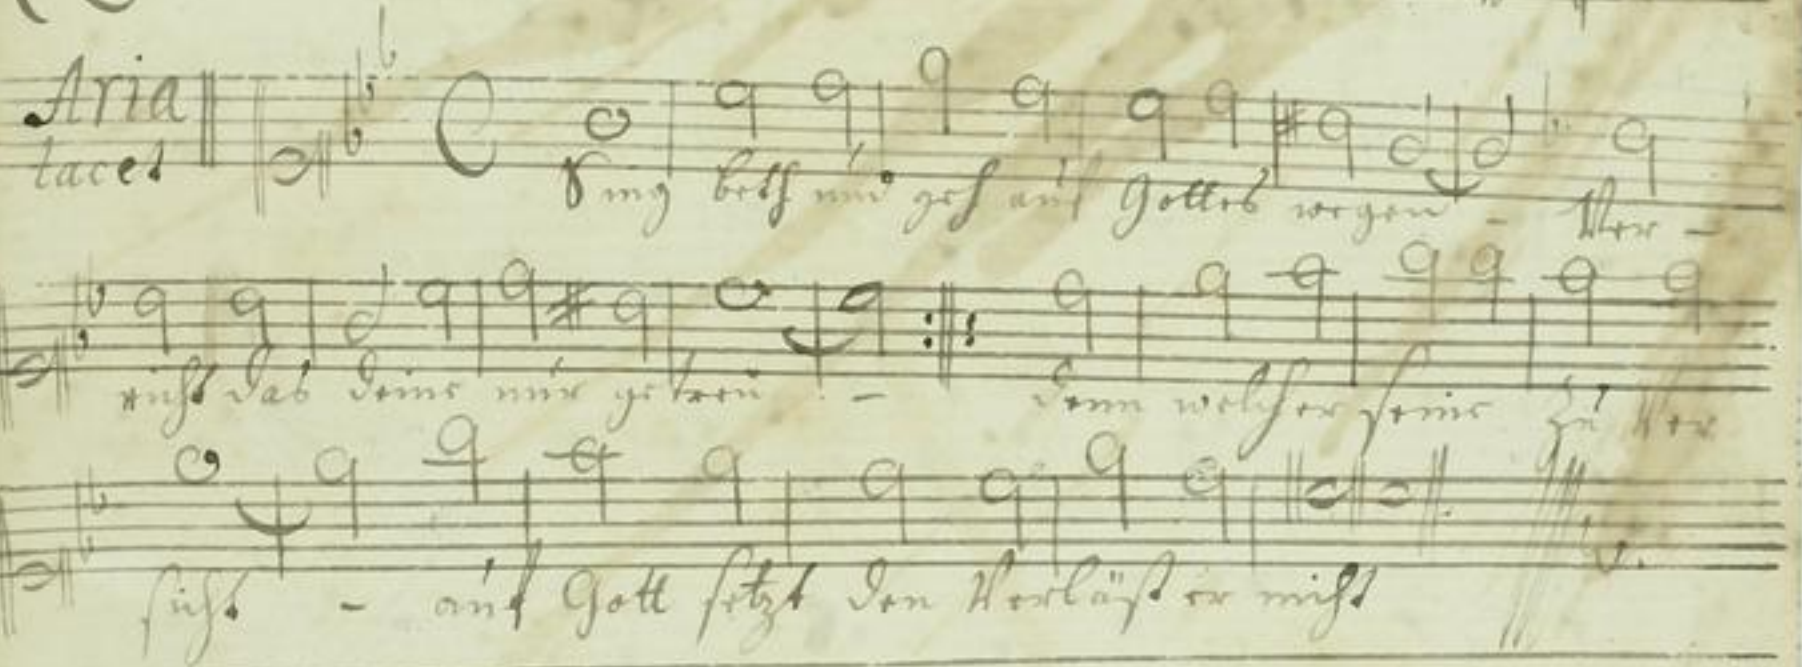 Aria
tacet
Sing beth und geh auf Gottes wegen - Ver -
richt das deine nur getreu -  denn welcher seine Zu ver
sicht - auf Gott setzt den Verläst er nicht